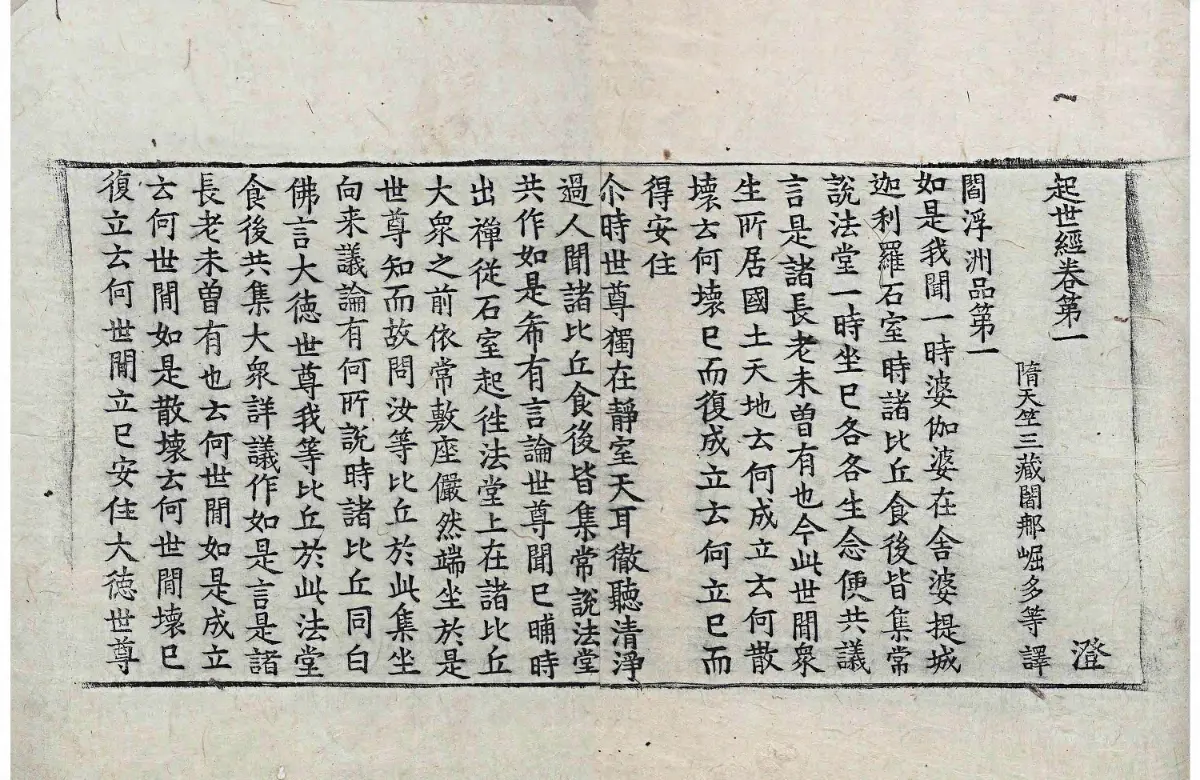 起世經卷第一
澄
隋天竺三藏闍那崛多等譯
閻浮洲品第一
如是我聞一時婆伽婆在舍婆提城
迦利羅石室時諸比丘食後皆集常
說法堂一時坐已各各生念便共議
言是諸長老未曾有也今此世間衆
生所居國土天地云何成立云何散
壞云何壞已而復成立云何立已而
得安住
尒時世尊獨在靜室天耳徹聽清淨
過人聞諸比丘食後皆集常說法堂
共作如是希有言論世尊聞已晡時
出禪從石室起往法堂上在諸比丘
大衆之前依常敷座儼然端坐於是
世尊知而故問汝等比丘於此集坐
向来議論有何所說時諸比丘同白
佛言大德世尊我等比丘於此法堂
食後共集大衆詳議作如是言是諸
長老未曾有也云何世間如是成立
云何世間如是散壞云何世間壞已
復立云何世間立已安住大德世尊